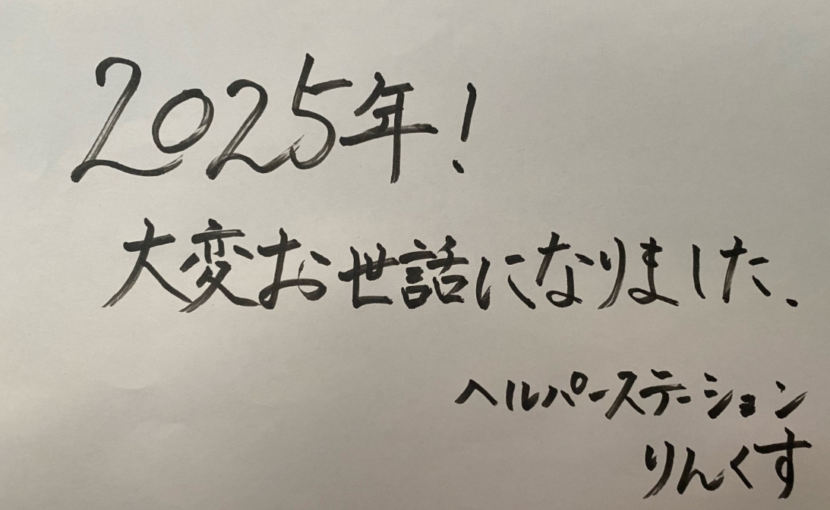 2025年!
大変お世話になりました、
ヘルパーステーション
りんくす